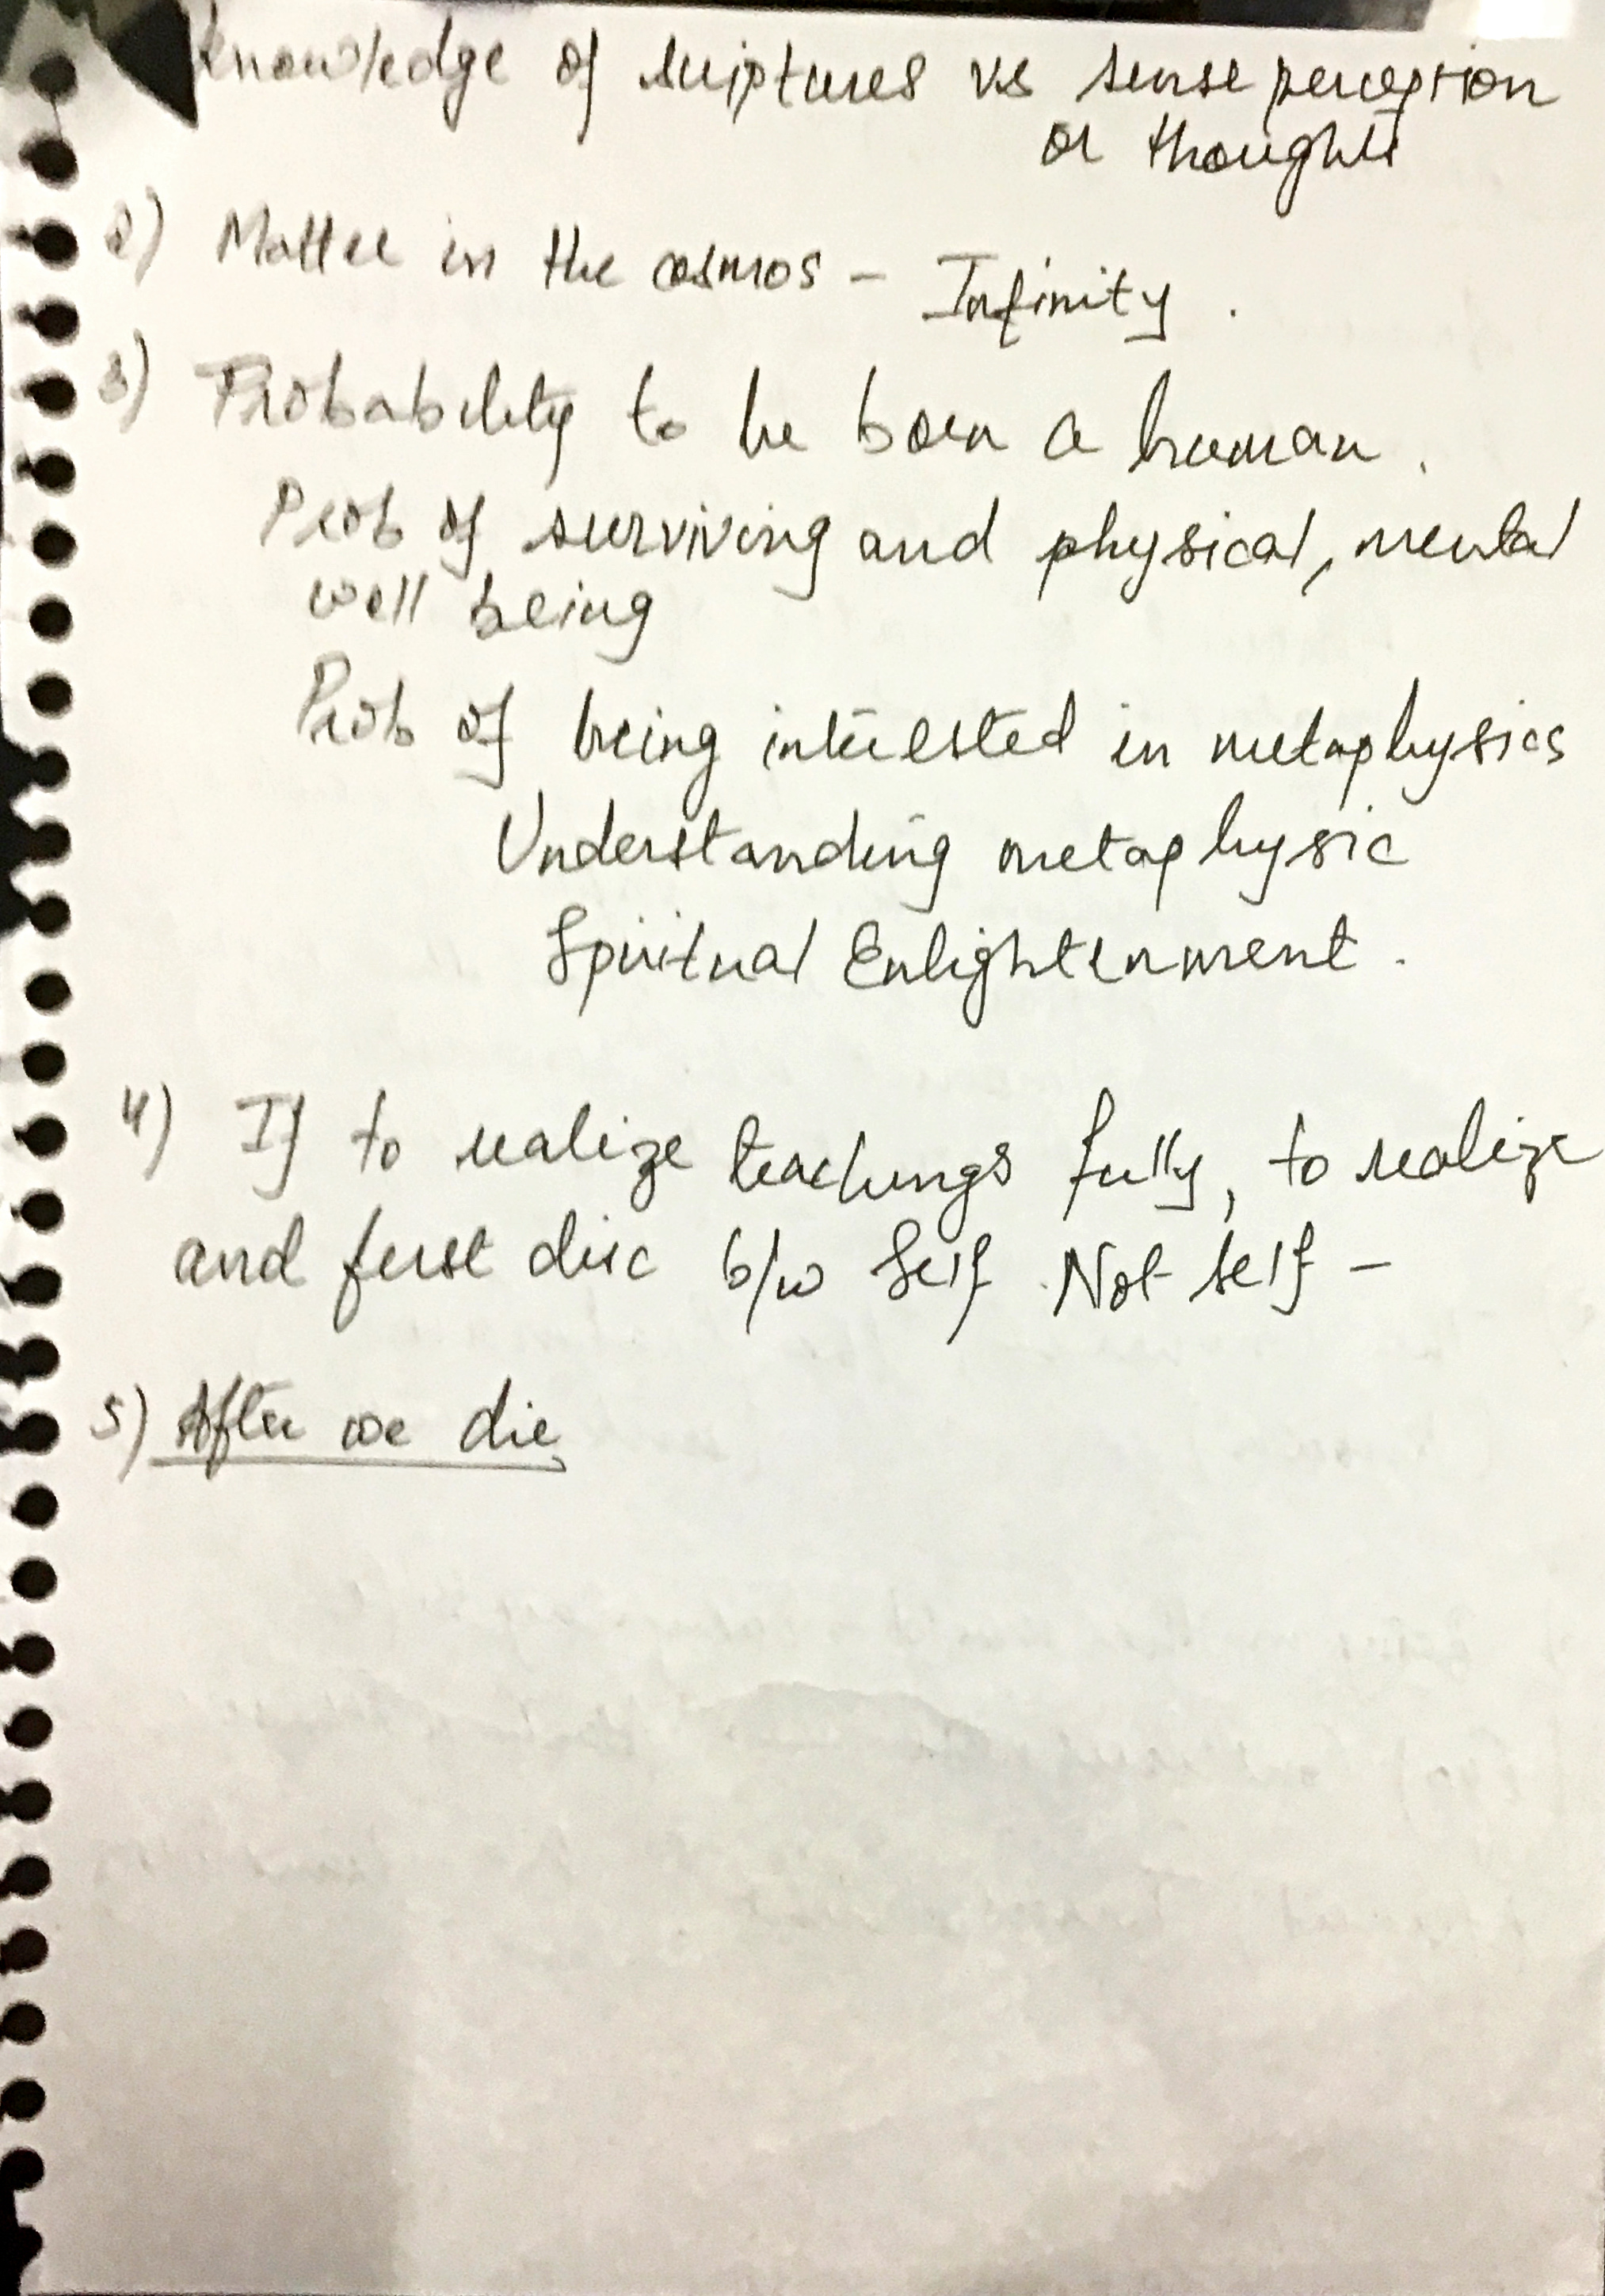 Knowledge of scriptures vs sense perception
or thoughts
2) Matter in the cosmos - Infinity.
3) Probability to be born a human.
Prob of surviving and physical, mental
well being
Prob of being interested in metaphysics
Understanding metaphysic
Spiritual Enlightenment.
4) If to realize teachings fully, to realize
and first disc b/w Self Not self -
5) After we die